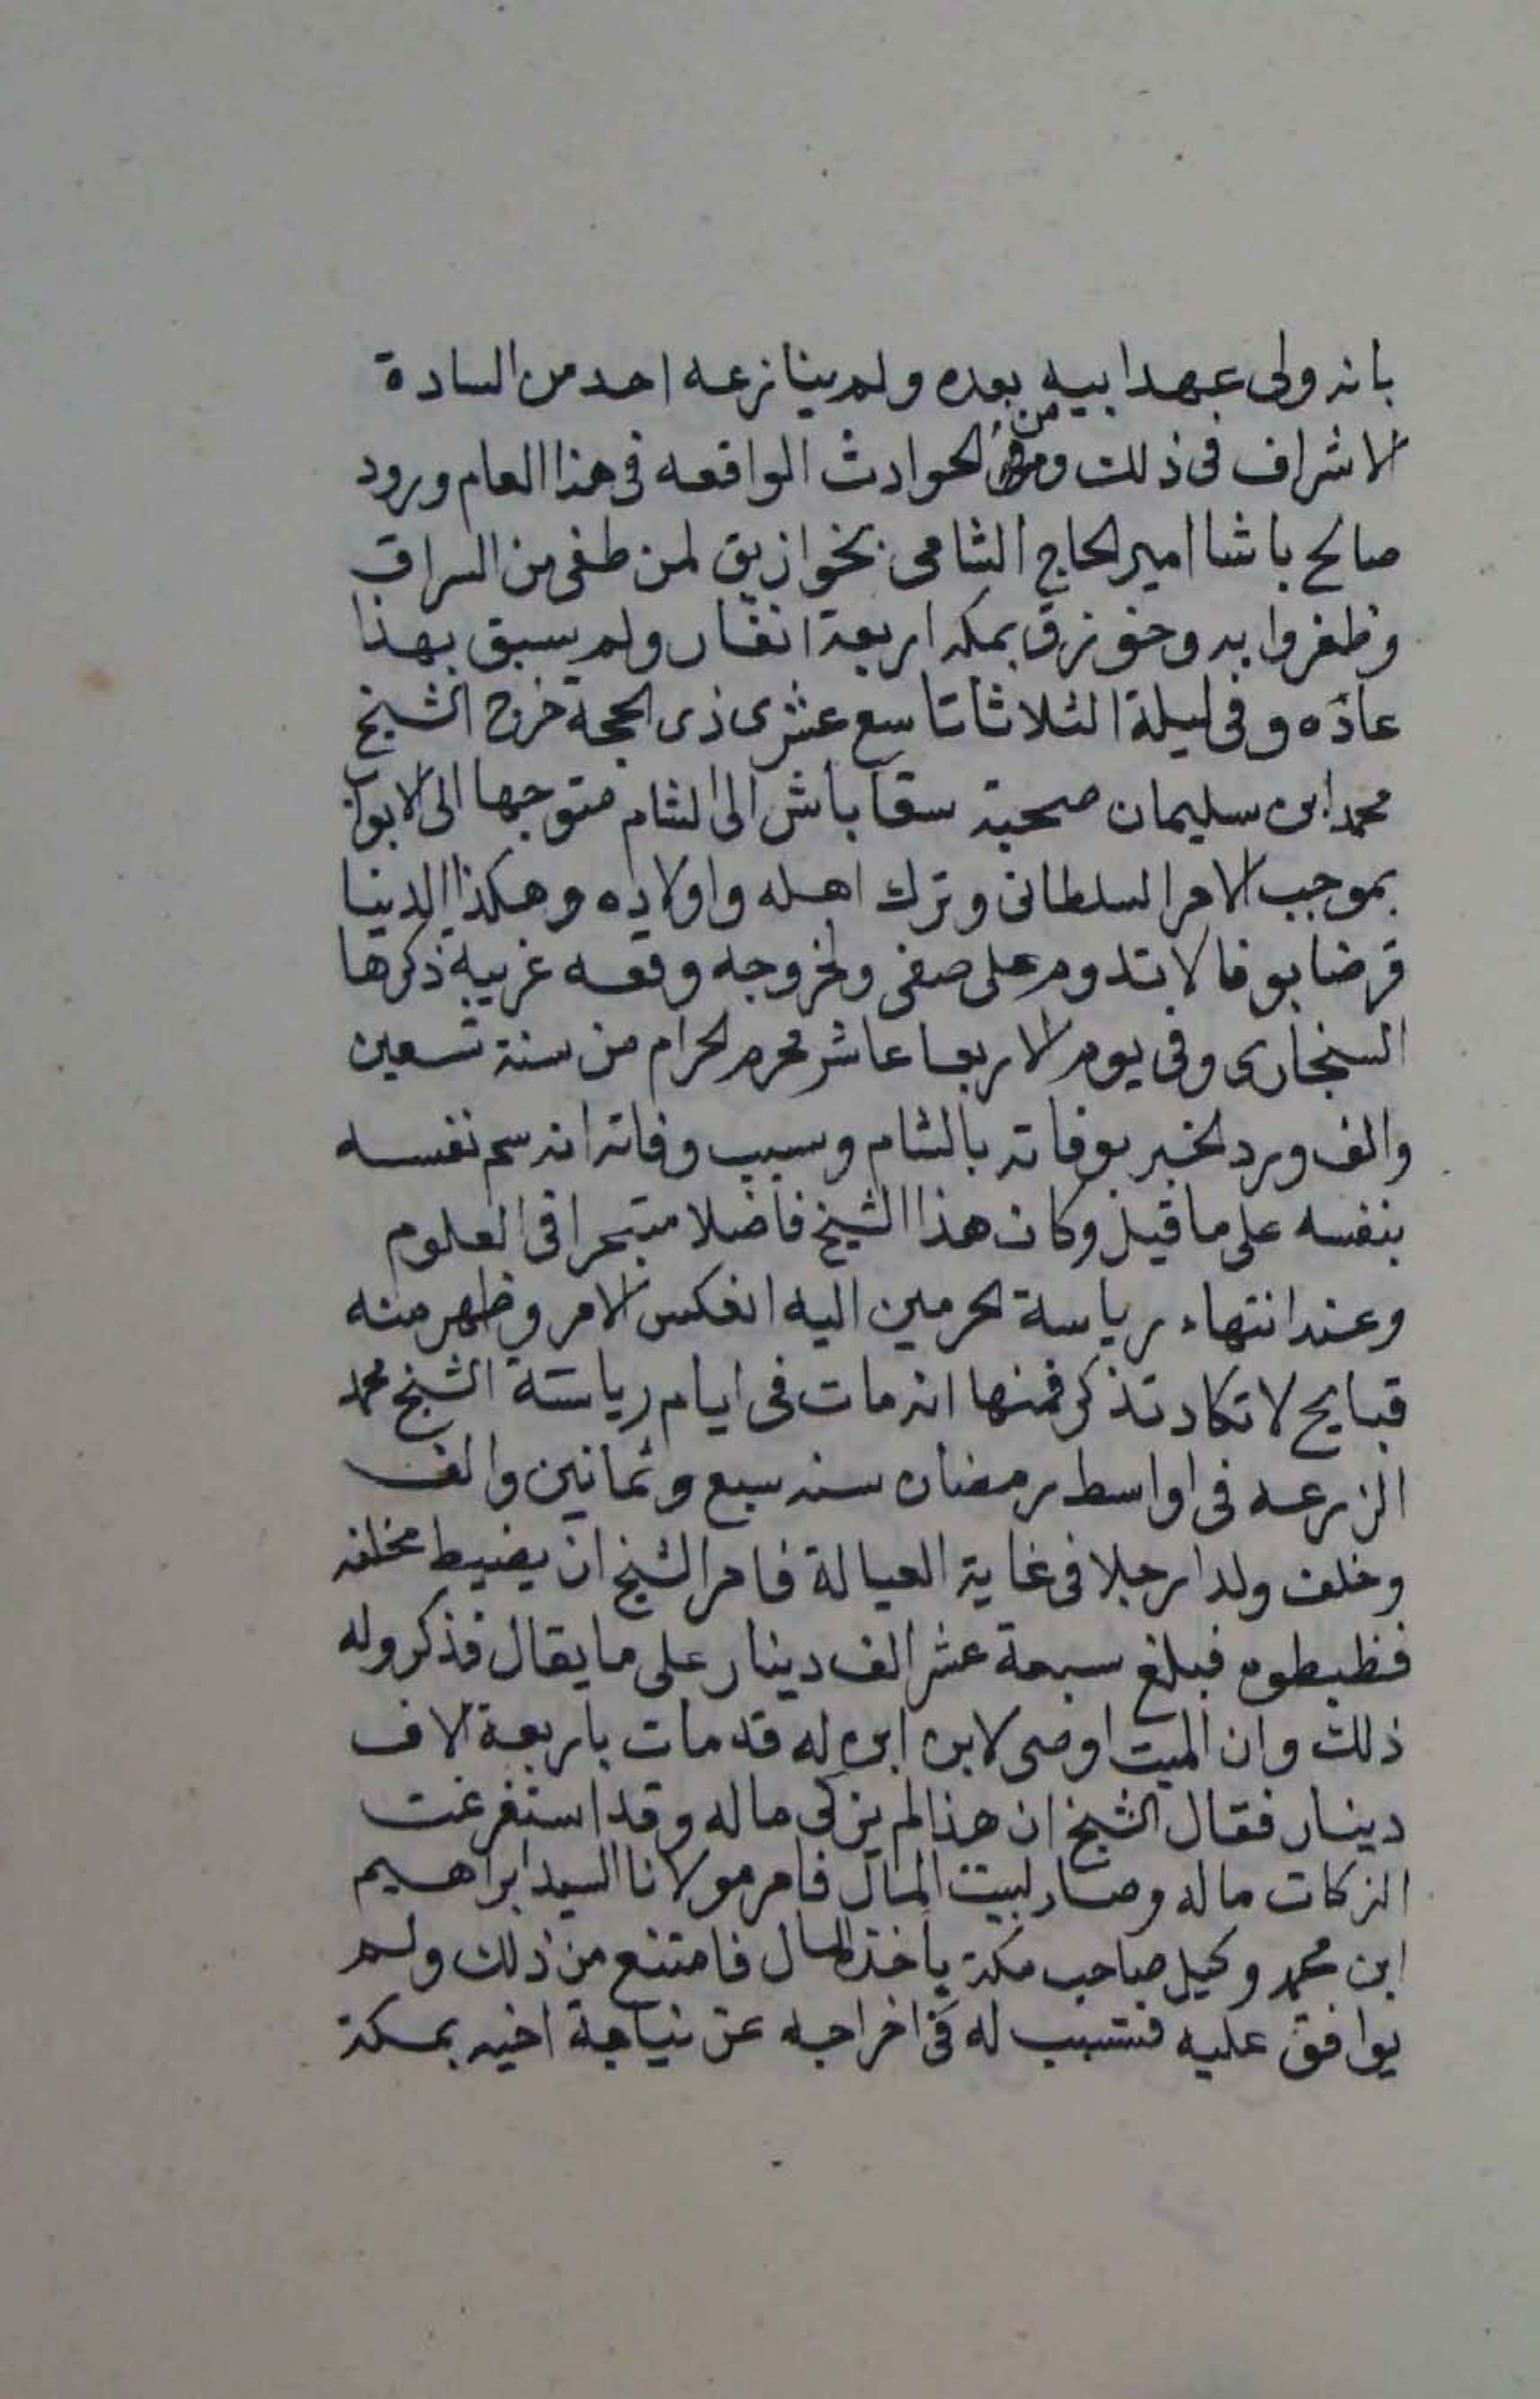 بانه ولى عهد ابيه بعده ولم ينازعه احد من السادة
الاشراف فى ذلك ومن الحوادث الواقعه فى هذا العام ورود
صالح باشا امير الحاج الشامى بخوازيق لمن طغى من السراق
وظفروا به وخوزق بمكه اربعة انفار ولم يسبق بهذا
عاده وفى ليلة الثلاثا تاسع عشرى ذى الحجة خرج الشيخ
محمد ابن سليمان صحبة سقا باش الى الشام متوجها الى الابواب
بموجب الامر السلطانى وترك اهله واولاده وهكذا الدينا
قرضا بوفا لا بتدوم على صفى ولخروجه وقعه غريبة ذكرها
السنجارى وفى يوم الاربعا عاشر محرم الحرام من سنة تسعين
والف ورد الخبر بوفاته بالشام وسبب وفاته انه سم نفسه
بنفسه على ما قيل وكان هذا الشيخ فاضلا متبحرا فى العلوم
وعند انتهاء رياسة الحرمين اليه انعكس الامر وظهر منه
قبايح لا تكاد تذكر فمنها انه مات فى ايام رياسته الشيخ محمد
الزرعه فى اواسط رمضان سنه سبع وثمانين والف
وخلف ولدا رجلا فى غاية العيالة فامر الشيخ ان يضبط مخلفه
فظبطوه فبلغ سبعة عشر الف دينار على ما يقال فذكروا له
ذلك وان الميت اوصى لابن ابن له قد مات باربعة الاف
دينار فقال الشيخ ان هذا لم يزكى ماله وقد استفرغت
الزكات ماله وصار لبيت المال فامر مولانا السيد ابراهيم
ابن محمد وكيل صاحب مكة ياخذ المال فامتنع من ذلك ولم
يوافق عليه فتسبب له فى اخراجه عن نياجة اخيه بمكة